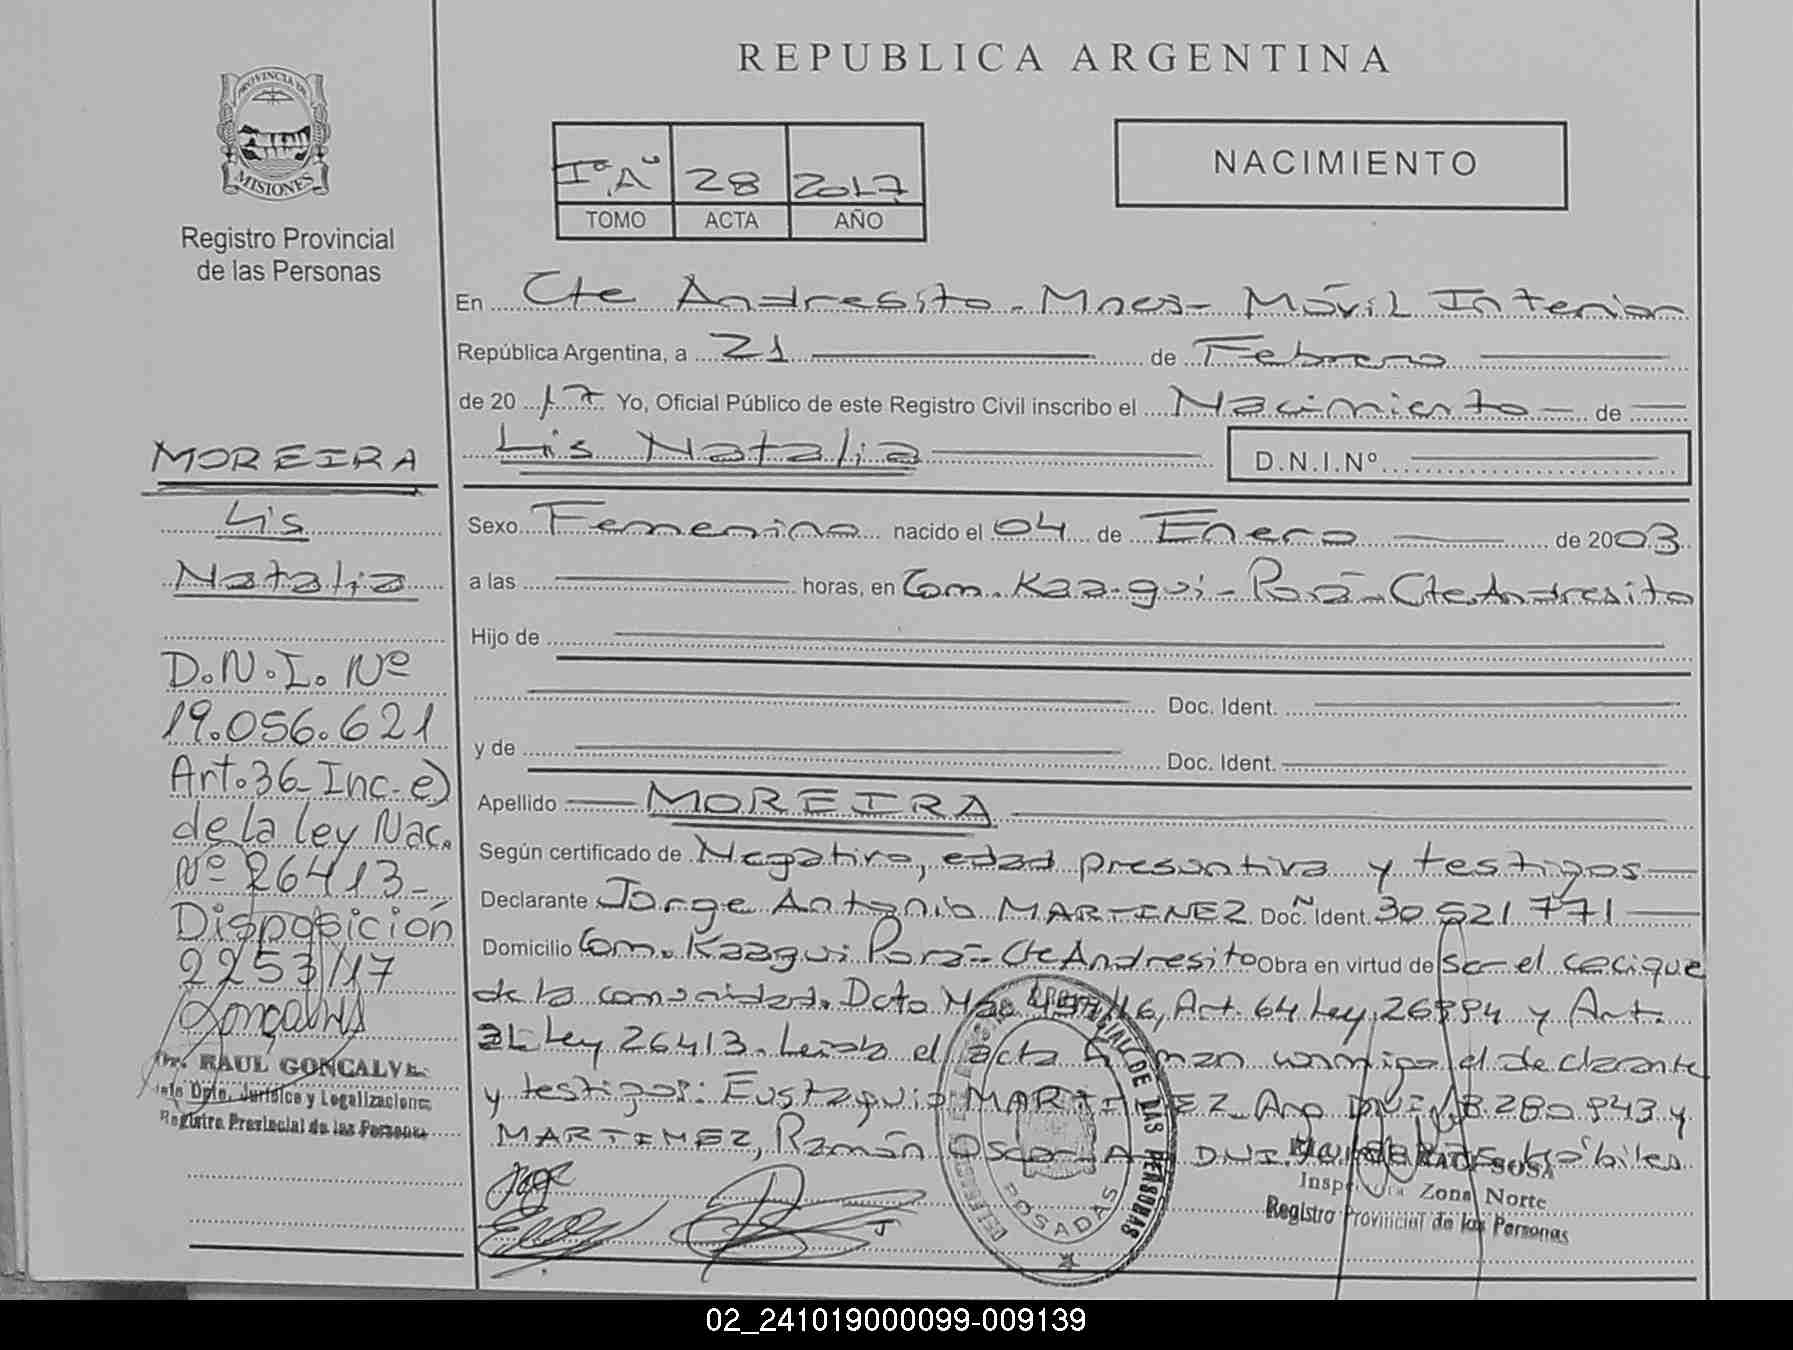 REPUBLICA ARGENTINA
PROVINCIA DE
MISIONES
Registro Provincial
de las Personas
Iº "A" 28 2017
TOMO ACTA AÑO
NACIMIENTO
En Cte Andresito - Mnes - Móvil Interior
República Argentina, a 21 de Febrero
de 2017 Yo, Oficial Público de este Registro Civil inscribo el Nacimiento de
Lis Natalia D.N.I.Nº
Sexo Femenino nacido el 04 de Enero de 2003
a las horas, en Com. Kaagui - Porá - Cte Andresito
Hijo de
Doc. Ident.
y de Doc. Ident.
Apellido MOREIRA
Según certificado de Negativo, edad presuntiva y testigos
Declarante Jorge Antonio MARTINEZ Doc. Ident. 30 521 771
Domicilio Com. Kaagui Porá - Cte Andresito Obra en virtud de Ser el cacique
de la comunidad. Dcto 16, Art. 64 Ley 26994 y Art.
Ley 26413. Leida el acta firman conmigo el declarante
y testigos: Eustaquio MARTINEZ Arg DNI 280.943 y
MARTINEZ, Ramón Oscar A DNI hábiles
MOREIRA
Lis
Natalia
D.N.I. Nº
19.056.621
Art. 36 Inc. e)
de la Ley Nac.
Nº 26413-
Disposición
2253/17
Gonçalves
Dr. RAUL GONCALVES
Jefe Dpto. Jurídico y Legalizaciones
Registro Provincial de las Personas
Jorge
REGISTRO PROVINCIAL DE LAS PERSONAS
POSADAS
SOSA
Inspectora Zona Norte
Registro Provincial de las Personas
02_241019000099-009139